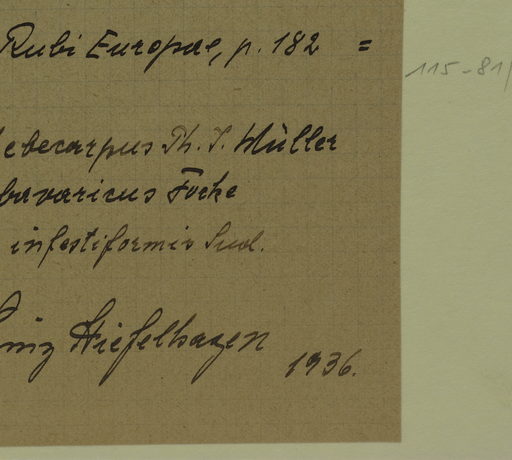 Rubi Europae, p. 182 =
115-81
ebecarpus Ph. J. Müller
bavaricus Focke
infestiformis Sud.
Hiefelhagen
1936.